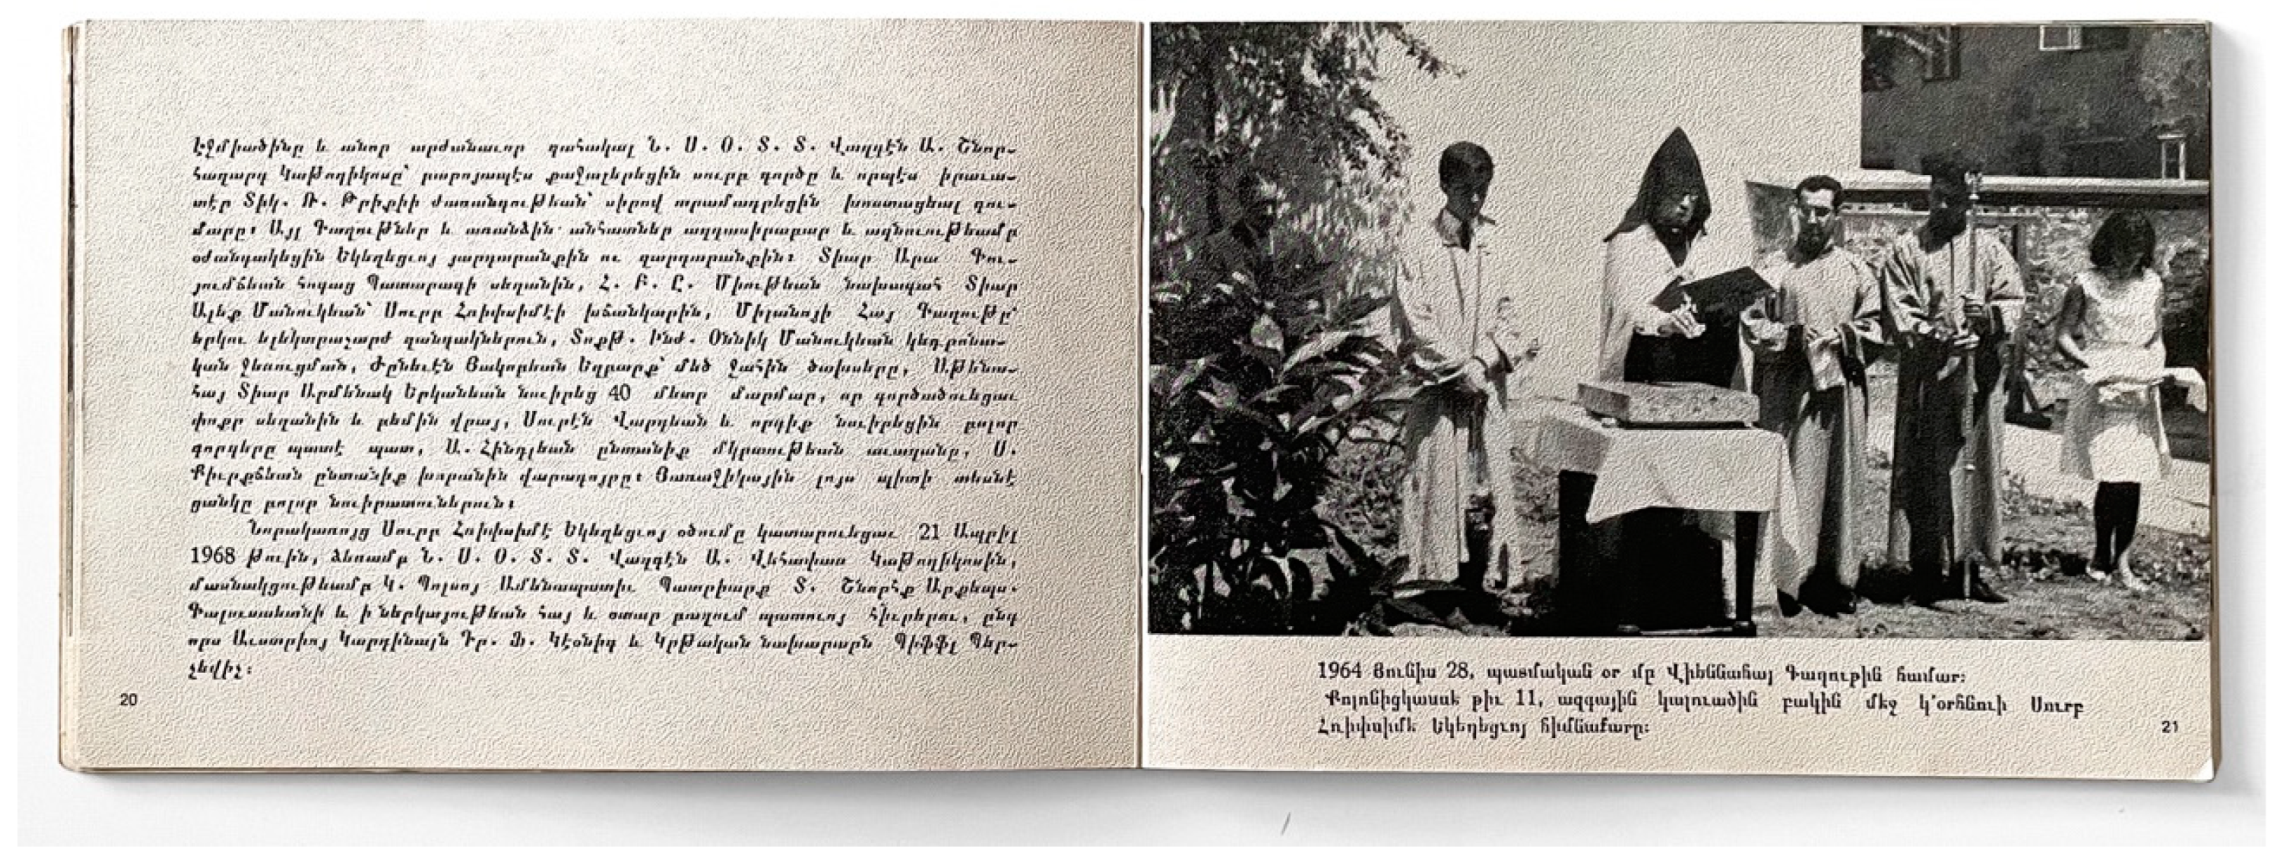 Էջմիածինը և անոր արժանաւոր գահակալ Ն. Ս. Օ. Տ. Տ. Վազգէն Ա. Շնոր-
հազարդ Կաթողիկոսը՝ բարոյապէս քաջալերեցին սուրբ գործը և որպէս իրաւա-
տէր Տիկ. Ռ. Թրիքիի ժառանգութեան՝ սիրով տրամադրեցին խոստացեալ գու-
մարը։ Այլ Գաղութներ և առանձին անհատներ ազգասիրաբար և ազնուութեամբ
օժանդակեցին Եկեղեցւոյ յարդարանքին ու զարդարանքին։ Տիար Արա Գու-
յումճեան հոգաց Պատարագի սեղանին, Հ. Բ. Ը. Միութեան նախագահ Տիար
Ալեք Մանուկեան՝ Սուրբ Հռիփսիմէի խճանկարին, Միլանոյի Հայ Գաղութը՝
երկու ելեկտրաշարժ զանգակներուն, Տոքթ. Ինժ. Օննիկ Մանուկեան կեդրոնա-
կան ջեռուցման, Ժընեւէն Յակոբեան Եղբարք՝ մեծ ջահին ծախսերը, Աթենա-
հայ Տիար Արմենակ Երկանեան նուիրեց 40 մետր մարմար, որ գործածուեցաւ
փոքր սեղանին և բեմին վրայ, Սուրէն Վարդեան և որդիք նուիրեցին բոլոր
գորգերը պատէ պատ, Ա. Հինդլեան ընտանիք մկրտութեան աւազանը, Ս.
Քիւրքճեան ընտանիք խորանին վարագոյրը։ Յառաջիկային լոյս պիտի տեսնէ
ցանկը բոլոր նուիրատուներուն։
Նորակառոյց Սուրբ Հռիփսիմէ Եկեղեցւոյ օծումը կատարուեցաւ 21 Ապրիլ
1968 թուին, ձեռամբ Ն. Ս. Օ. Տ. Տ. Վազգէն Ա. Վեհափառ Կաթողիկոսին,
մասնակցութեամբ Կ. Պոլսոյ Ամենապատիւ Պատրիարք Տ. Շնորհք Արքեպս.
Գալուստեանի և ի ներկայութեան հայ և օտար բազում պատուոյ հիւրերու, ընդ
որս Աւստրիոյ Կարդինայն Դր. Ֆ. Կէօնիգ և Կրթական նախարարն Պիֆֆլ Պեր-
չեվիչ։
20
1964 Յունիս 28, պատմական օր մը Վիեննահայ Գաղութին համար։
Քոլոնիցկասսե թիւ 11, ազգային կալուածին բակին մեջ կ'օրհնուի Սուրբ
Հռիփսիմե Եկեղեցւոյ հիմնաքարը։
21